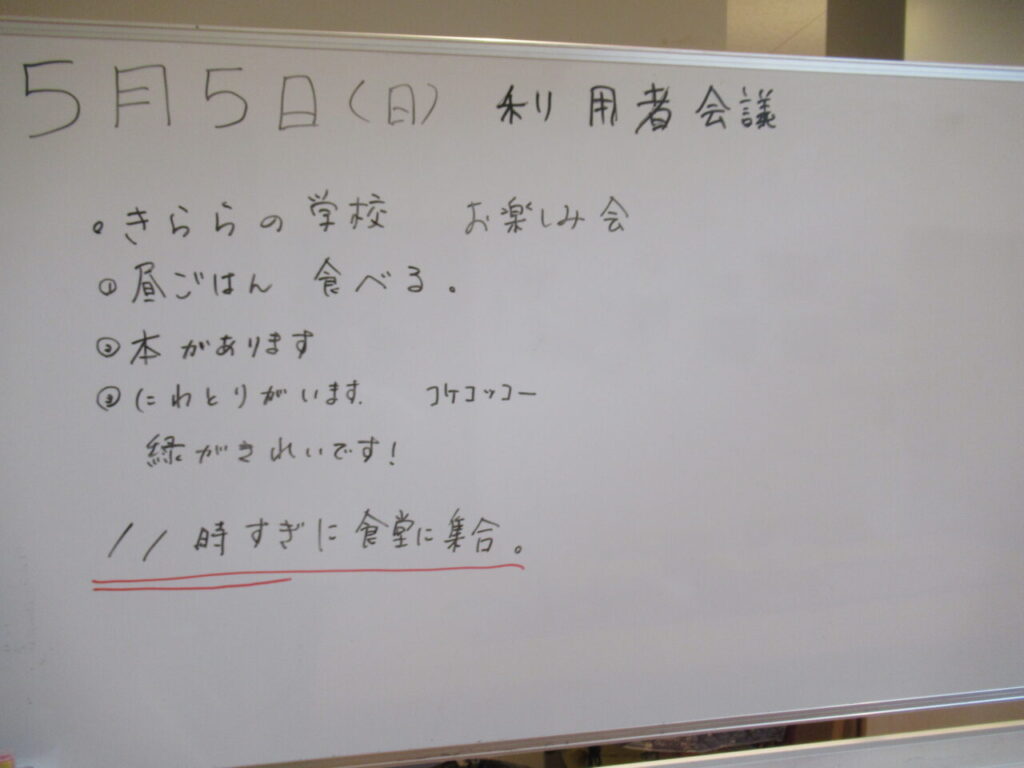 5月5日(日) 利用者会議
。きららの学校 お楽しみ会
① 昼ごはん 食べる。
② 本があります
③ にわとりがいます. コケコッコー
緑がきれいです!
11時すぎに食堂に集合。